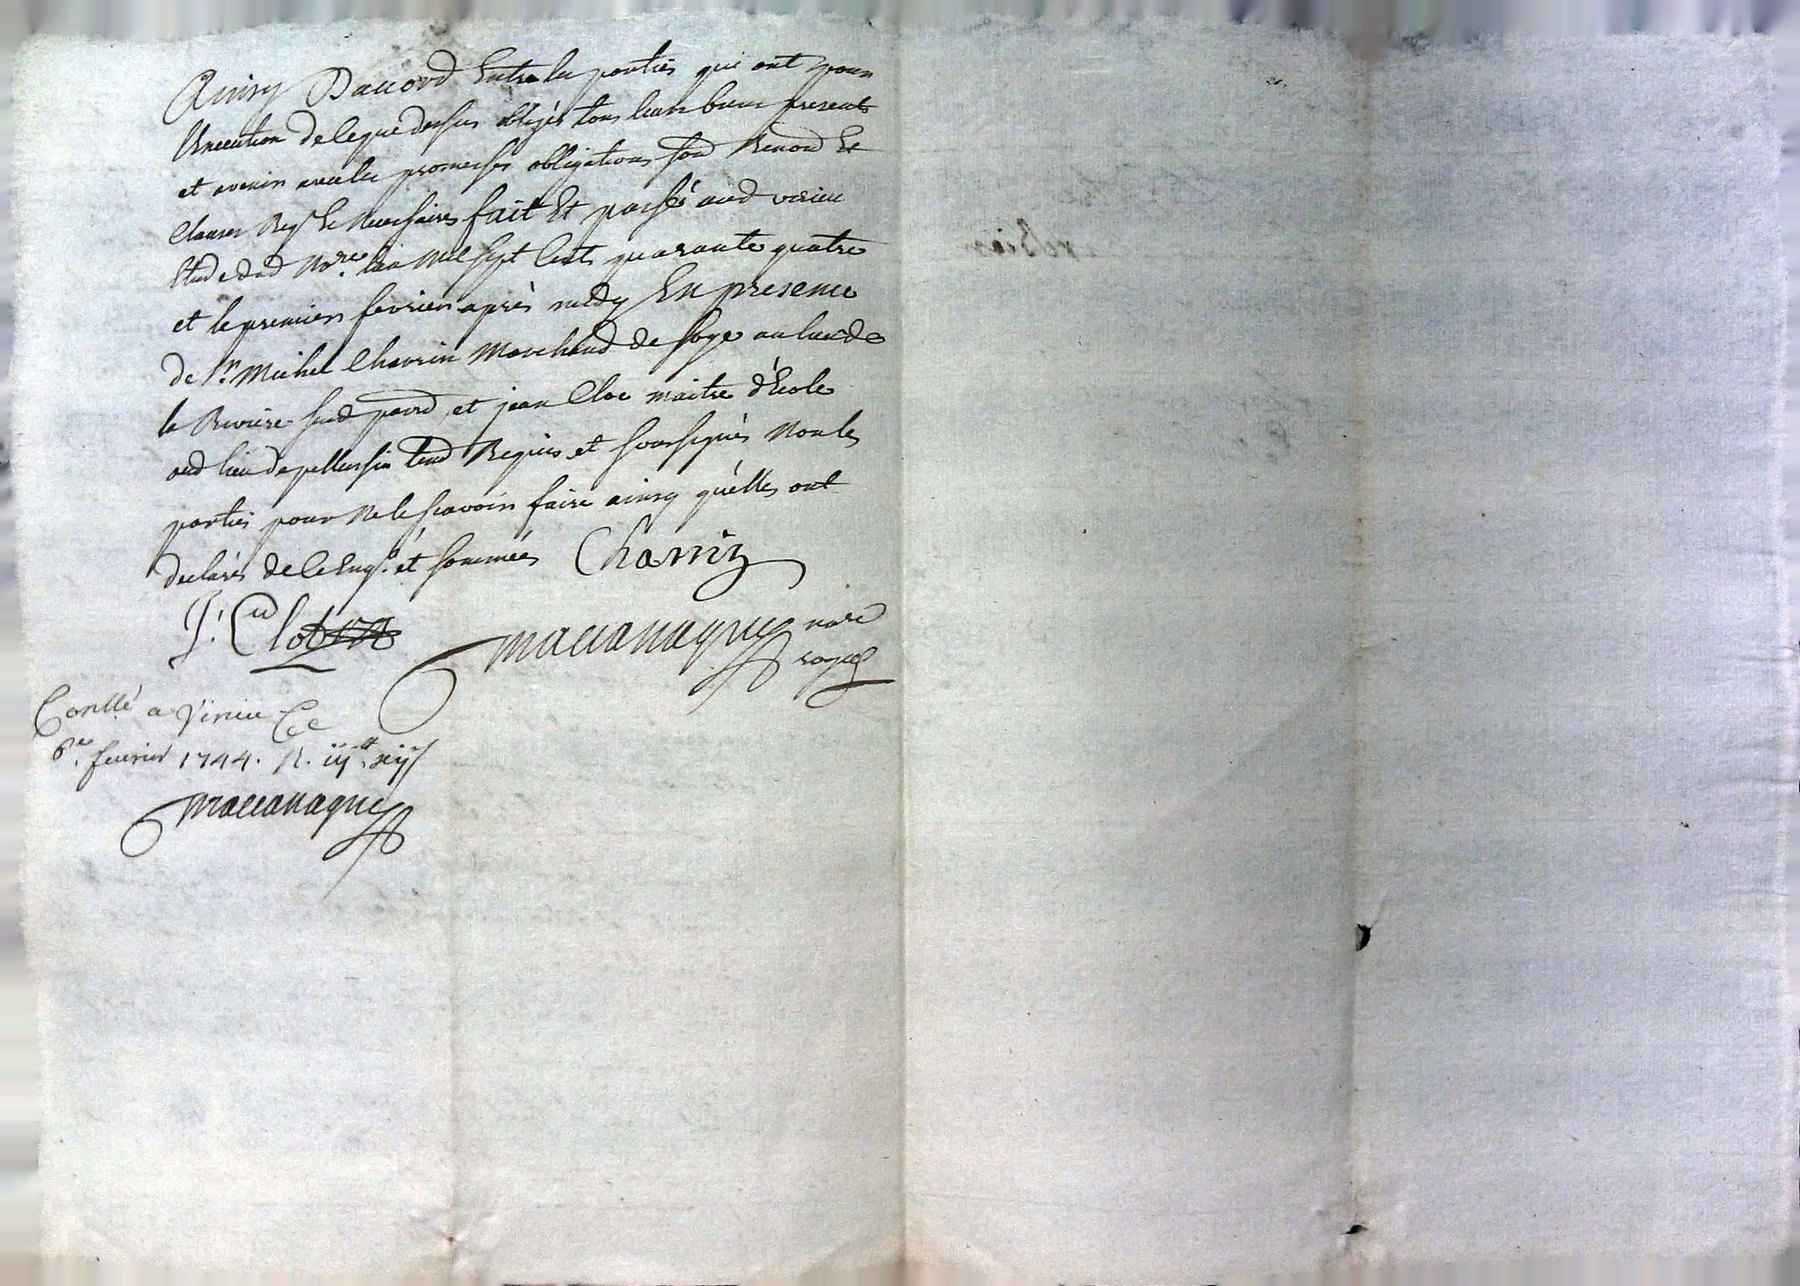 Ainsy Daccord Entre les parties qui ont pour
l'Execution de ce que dessus obligés tous leurs biens presents
et avenir avec les promesses obligations Renond Et
Clauses Req. Et Necessaires fait Et passé aud virieu
Etude dud No.re L'an Mil sept Cents quarante quatre
et le premier fevrier après midy En presence
de S.r Michel Charrin Marchand de soye au lieu de
la Riviere et jean Cloc maitre d'Ecole
aud lieu de Requis et soussignés Non les
parties pour Ne le scavoir faire ainsy quelles ont
declarés de ce Enq.s et sommés Charrin
J. Clo
maccanague no.re
royal
Con.llé a Virieu Ce
6.e fevrier 1744. R.
maccanague